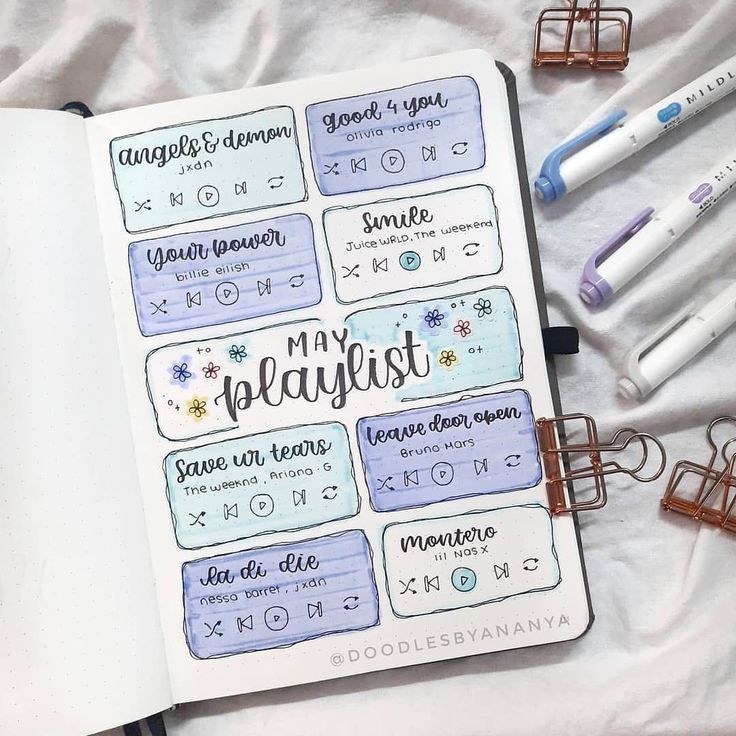 angels & demon
jxdn
good 4 you
olivia rodrigo
your power
billie eilish
Smile
Juice WRLD, The weekend
MAY
playlist
Save ur tears
The weeknd, Ariana · G
leave door open
Bruno Mars
la di die
nessa barret, jxdn
montero
lil Nas X
@DOODLESBYANANYA
MILDL
MILD